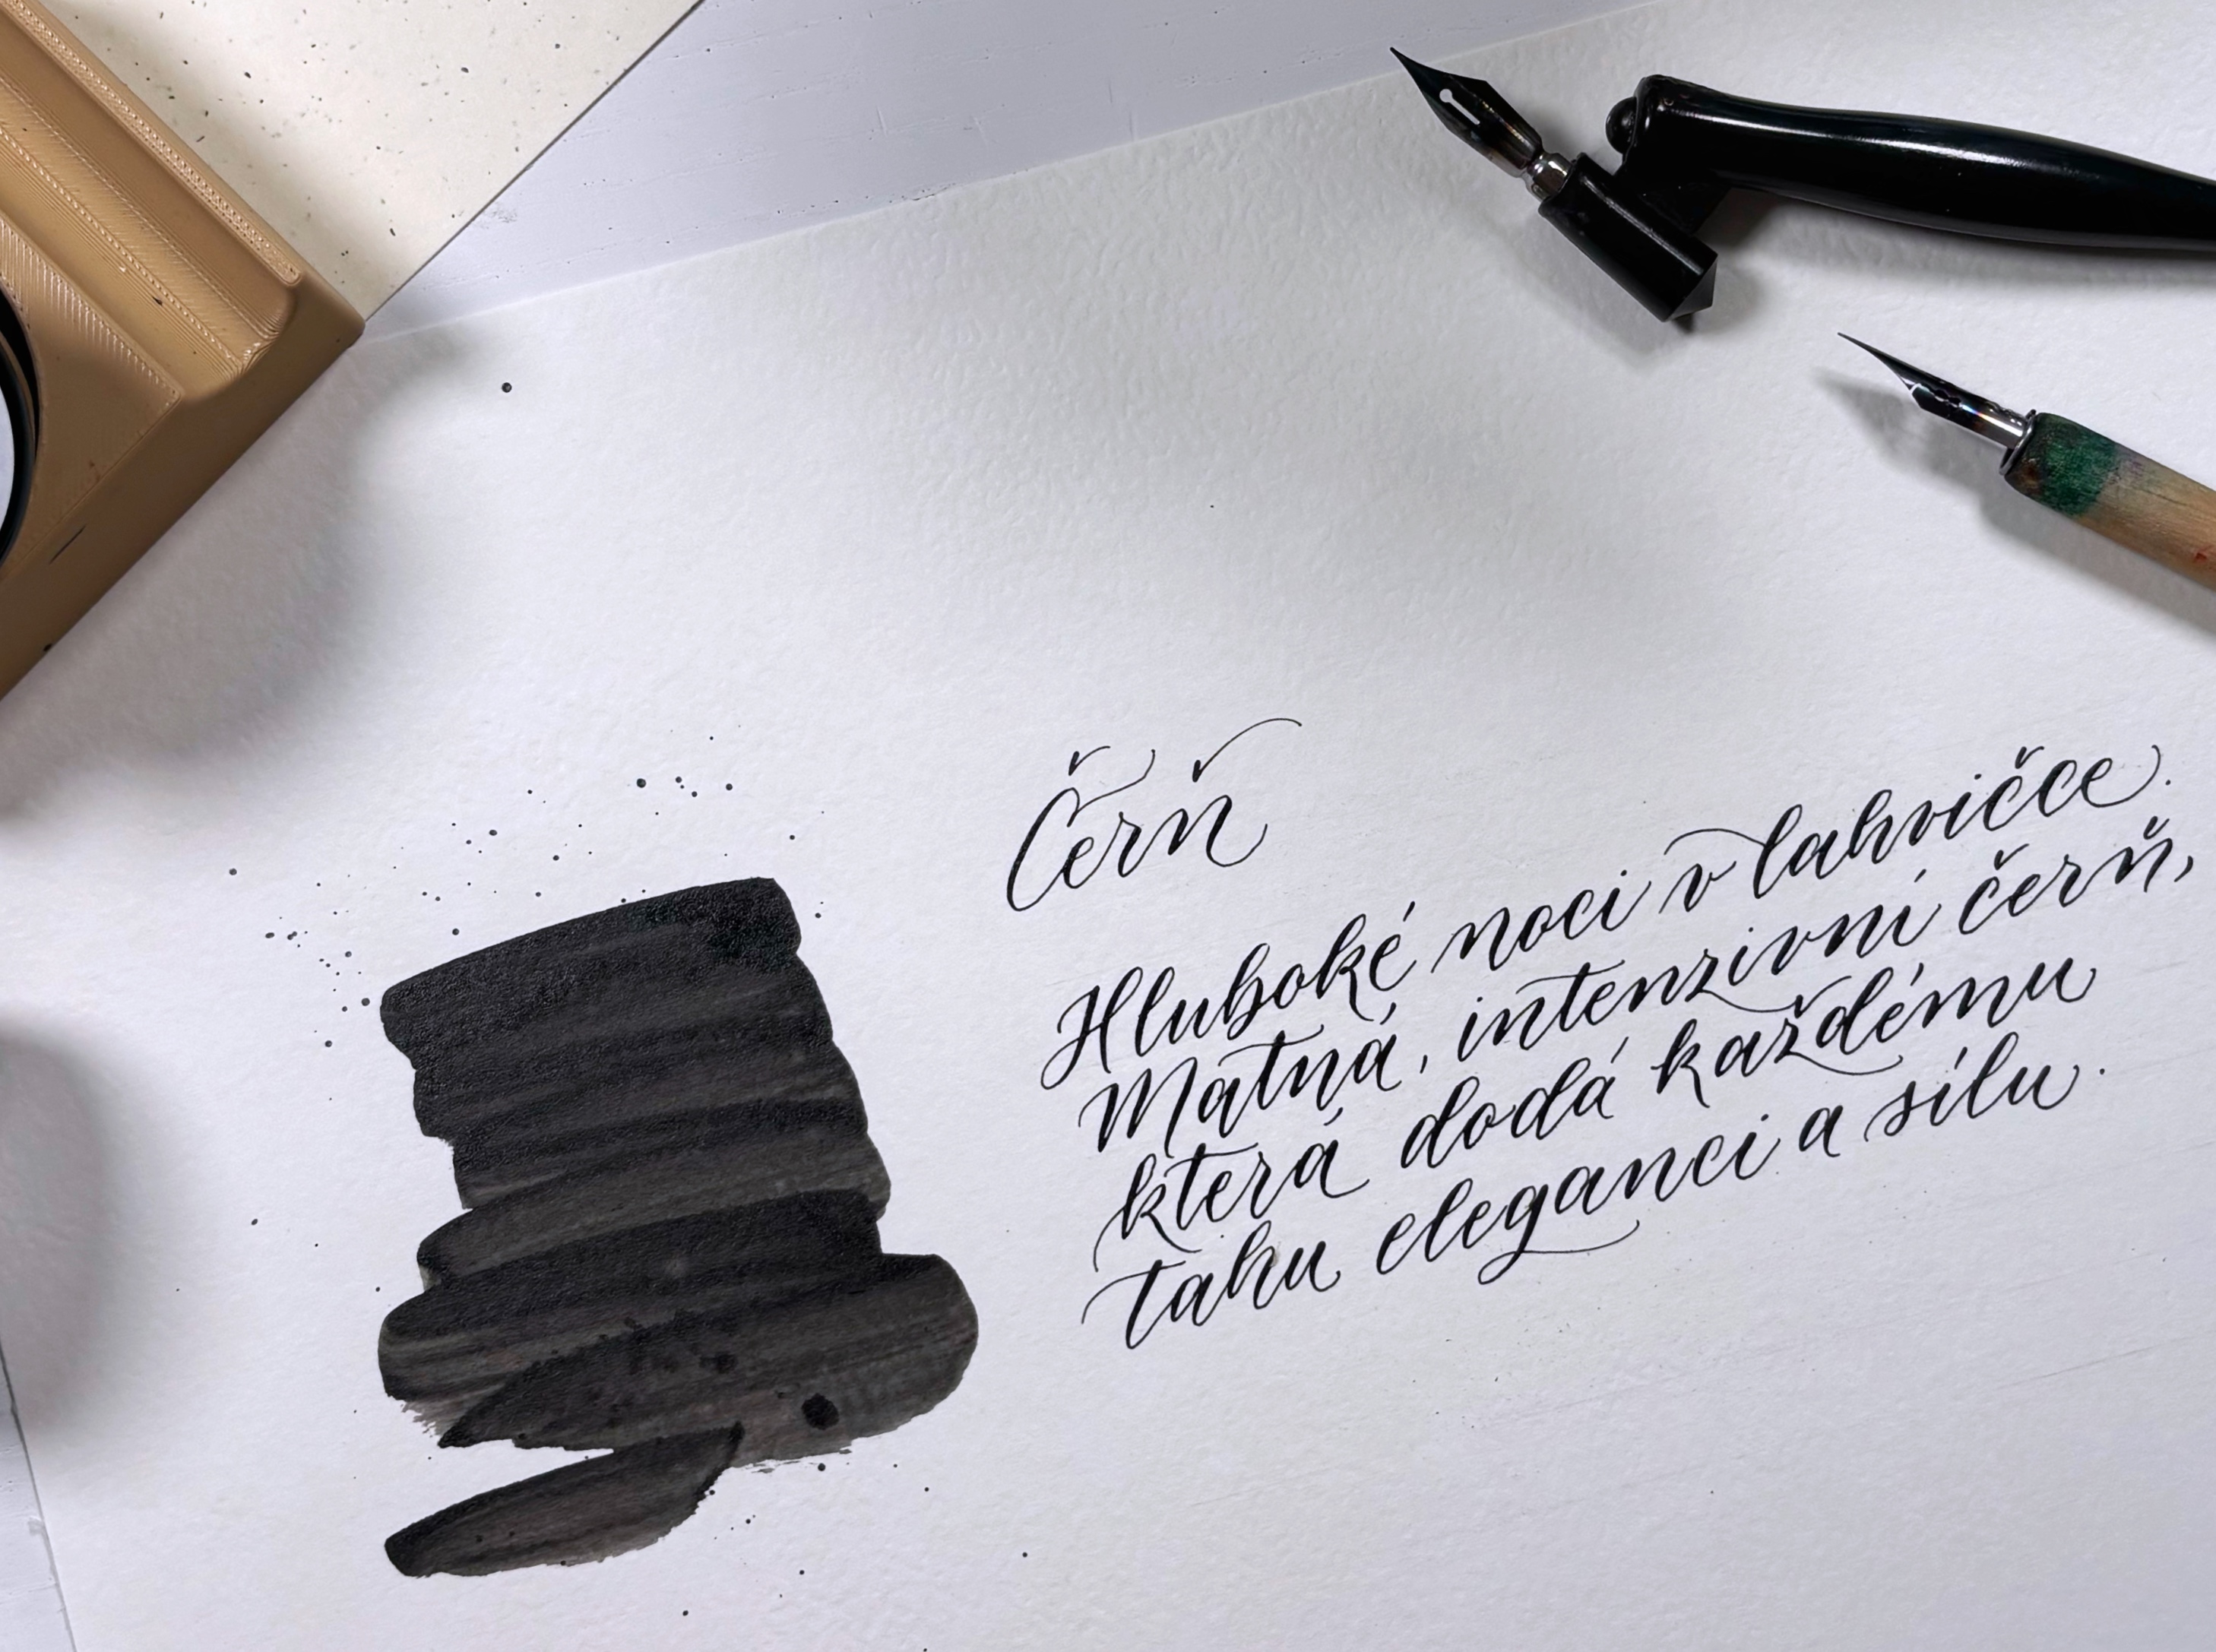 Čerň
Hluboké noci v lahvičce.
Matná, intenzivní čerň,
která dodá každému
tahu eleganci a sílu.